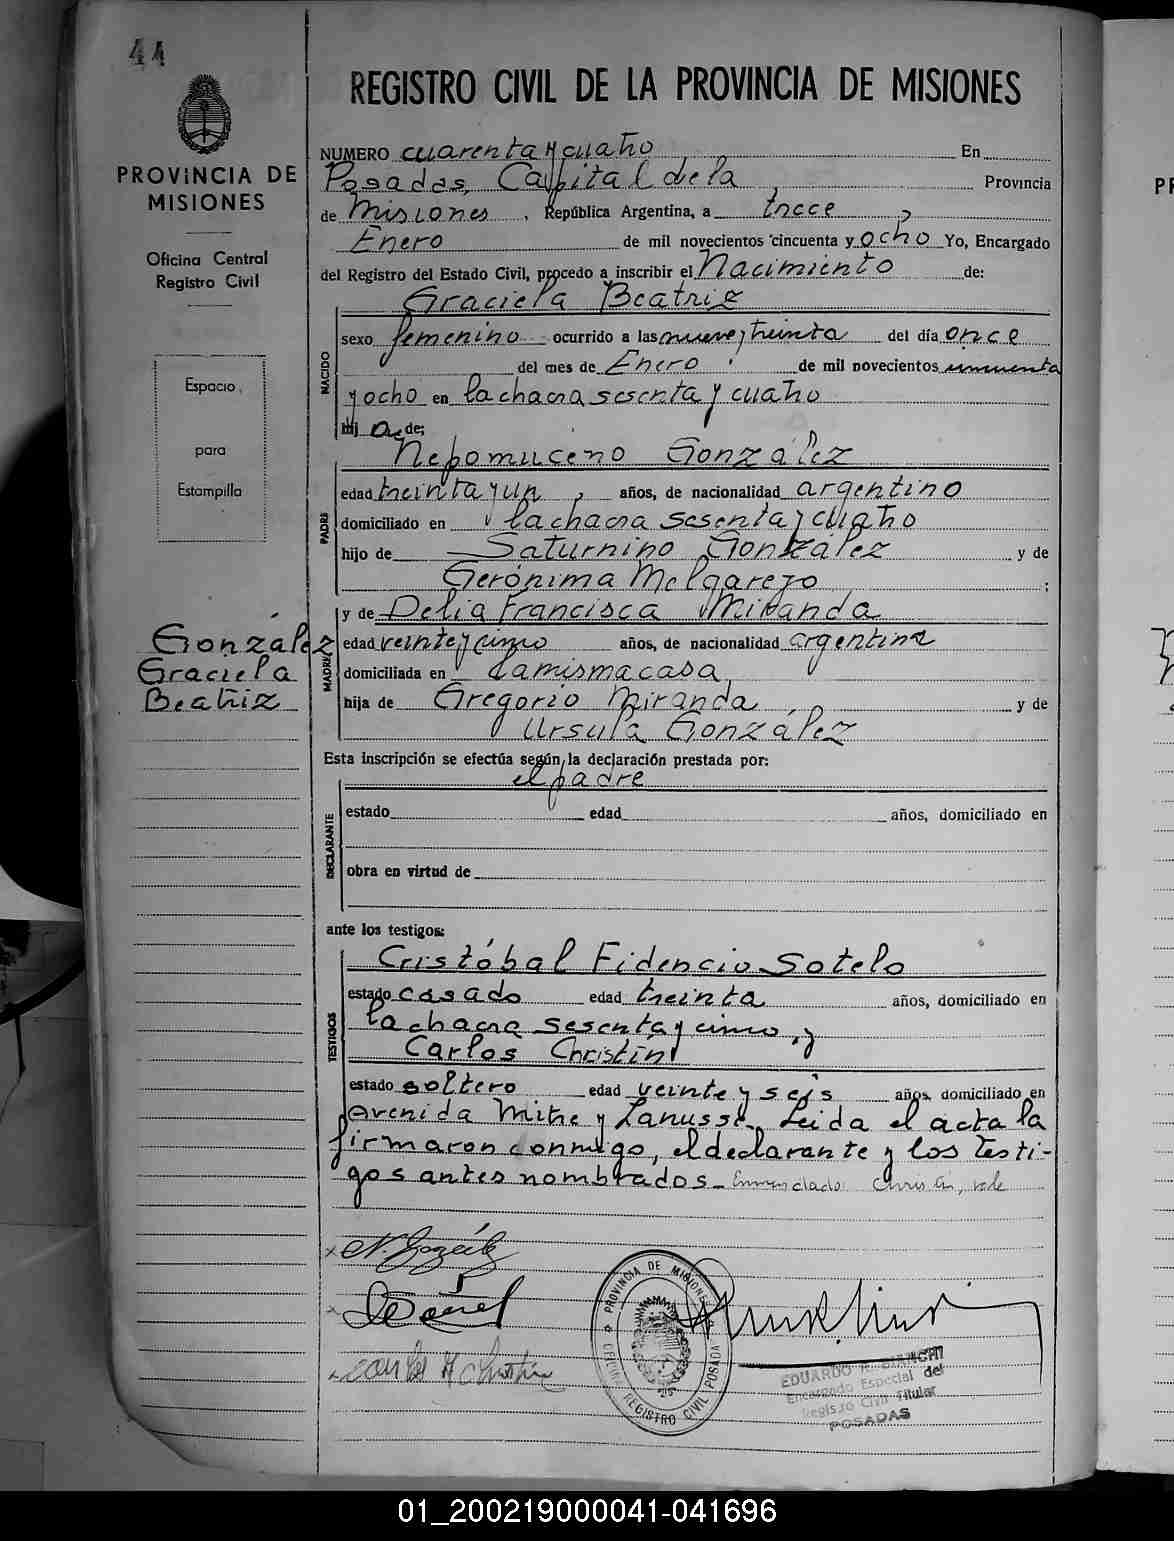 44
REGISTRO CIVIL DE LA PROVINCIA DE MISIONES
PROVINCIA DE
MISIONES
Oficina Central
Registro Civil
Espacio
para
Estampilla
González
Graciela
Beatriz
NUMERO cuarenta y cuatro En
Posadas, Capital de la Provincia
de Misiones, República Argentina, a trece
Enero de mil novecientos cincuenta y ocho Yo, Encargado
del Registro del Estado Civil, procedo a inscribir el Nacimiento de:
Graciela Beatriz
NACIDO
sexo femenino ocurrido a las nueve y treinta del día once
del mes de Enero de mil novecientos cincuenta
y ocho en la chacra sesenta y cuatro
hija de:
Nepomuceno González
PADRE
edad treinta y un, años, de nacionalidad argentino
domiciliado en la chacra sesenta y cuatro
hijo de Saturnino González y de
Gerónima Melgarejo ;
y de Delia Francisca Miranda
MADRE
edad veinte y cinco años, de nacionalidad argentina
domiciliada en la misma casa
hija de Gregorio Miranda y de
Ursula González
Esta inscripción se efectúa según la declaración prestada por:
el padre
DECLARANTE
estado edad años, domiciliado en
obra en virtud de
ante los testigos:
Cristóbal Fidencio Sotelo
TESTIGOS
estado casado edad treinta años, domiciliado en
la chacra sesenta y cinco, y
Carlos Christin
estado soltero edad veinte y seis años, domiciliado en
Avenida Mitre y Lanusse. Leida el acta la
firmaron conmigo, el declarante y los testi-
gos antes nombrados- Enmendado: Christin, vale
N. González
PROVINCIA DE MISIONES
OFICINA REGISTRO CIVIL POSADAS
EDUARDO BIANCHI
Encargado Especial del
Registro Civil Titular
POSADAS
01_200219000041-041696